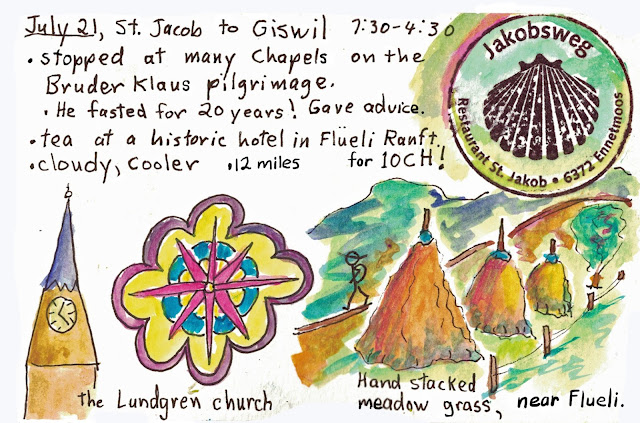 July 21, St. Jacob to Giswil 7:30-4:30
• stopped at many Chapels on the
Bruder Klaus pilgrimage.
• He fasted for 20 years! Gave advice.
• tea at a historic hotel in Flüeli Ranft,
for 10CH!
• cloudy, cooler • 12 miles
Jakobsweg
Restaurant St. Jakob • 6372 Ennetmoos
the Lundgren church
Hand stacked
meadow grass, near Flueli.